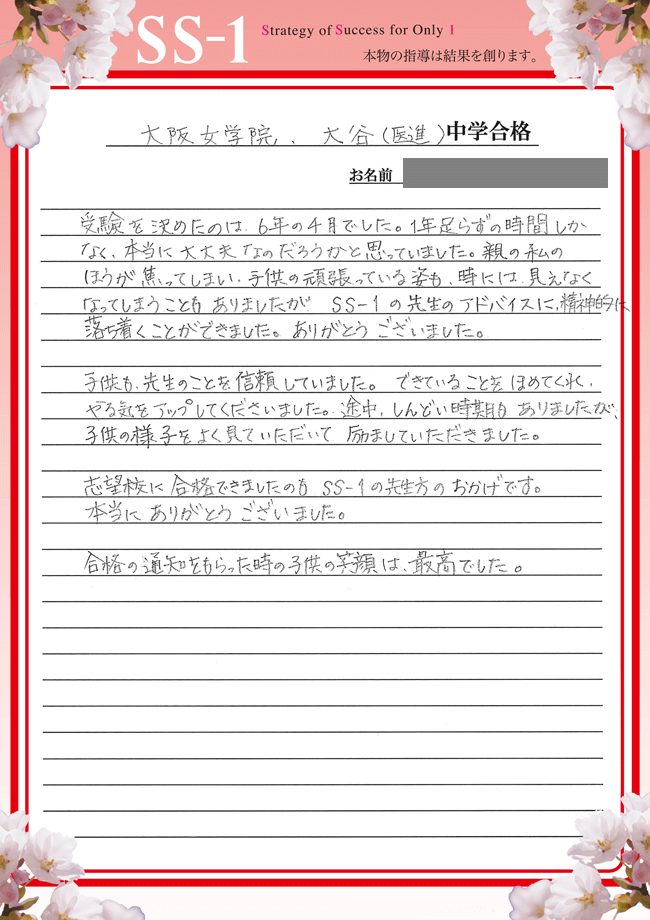 SS-1 Strategy of Success for Only 1
本物の指導は結果を創ります。
大阪女学院、大谷(医進)中学合格
お名前
受験を決めたのは、6年の4月でした。1年足らずの時間しか
なく、本当に大丈夫なのだろうかと思っていました。親の私の
ほうが焦ってしまい、子供の頑張っている姿も、時には、見えなく
なってしまうこともありましたが SS-1の先生のアドバイスに、精神的に
落ち着くことができました。ありがとうございました。
子供も、先生のことを信頼していました。できていることをほめてくれ、
やる気をアップしてくださいました。途中、しんどい時期もありましたが、
子供の様子をよく見ていただいて励ましていただきました。
志望校に合格できましたのもSS-1の先生方のおかげです。
本当にありがとうございました。
合格の通知をもらった時の子供の笑顔は、最高でした。